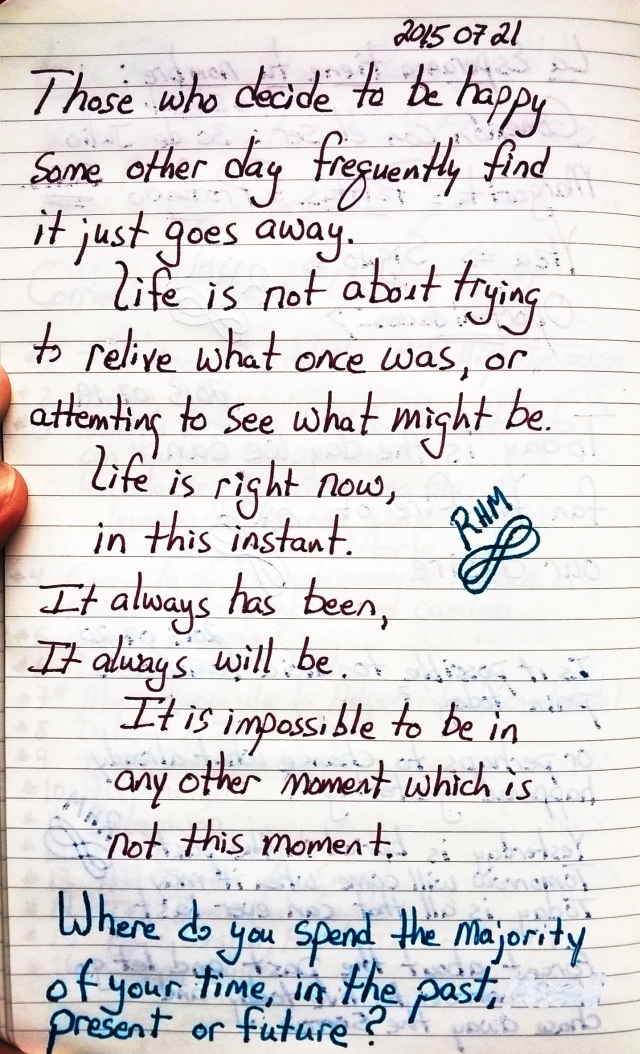 2015 07 21
Those who decide to be happy
some other day frequently find
it just goes away.
Life is not about trying
to relive what once was, or
attemting to see what might be.
Life is right now,
in this instant.
RHM
It always has been,
It always will be.
It is impossible to be in
any other moment which is
not this moment.
Where do you spend the majority
of your time, in the past,
present or future?